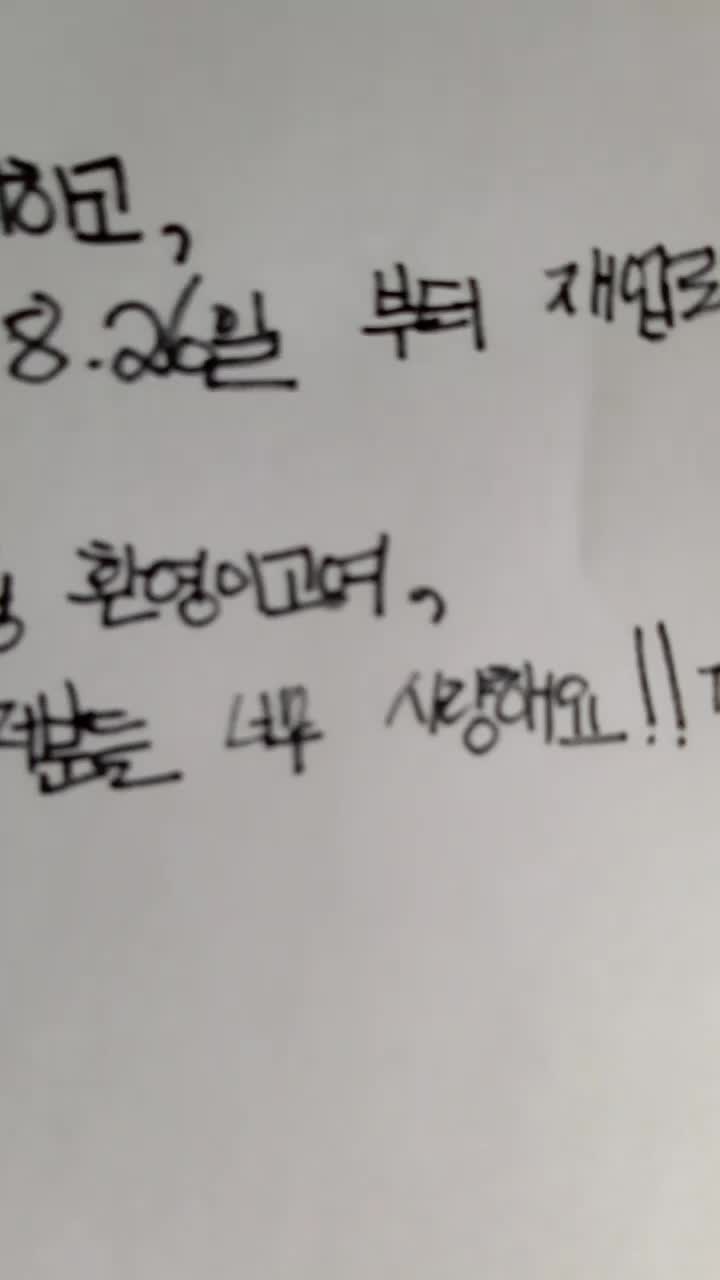 하고,
8.26일 부터 재업로
환영이고여,
분들 너무 사랑해요!!